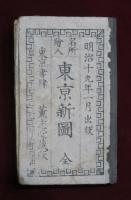 明治十九年一月出版
名所
繪入
東京新圖
全
東京書肆